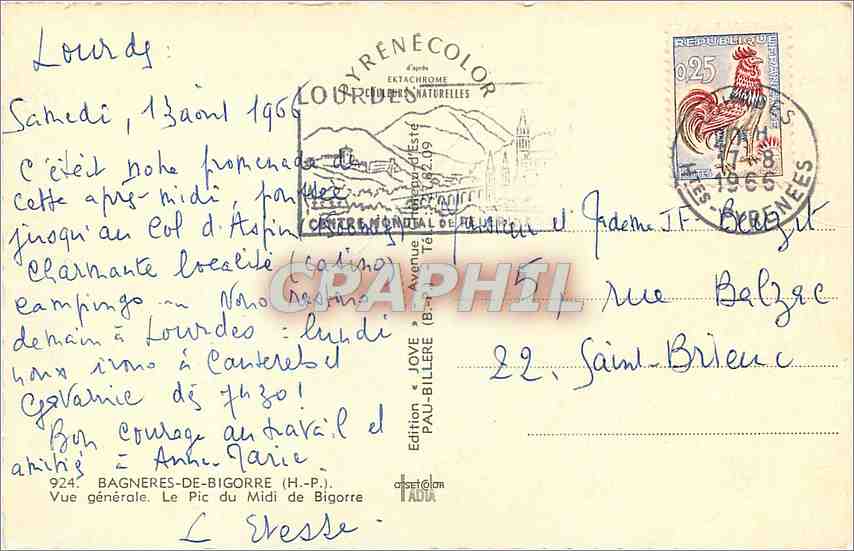 Lourdes :
Samedi, 13 août 1966
C'était notre promenade de
cette après-midi, poussée
jusqu'au Col d'Aspin
charmante localité (casino)
campings ... Nous
demain à Lourdes = lundi
nous irons à Cauterets et
Gavarnie dès 7h30!
Bon courage au travail et
amitiés à Anne-Marie.
L
924. BAGNERES-DE-BIGORRE (H.-P.).
Vue générale. Le Pic du Midi de Bigorre
PYRÉNÉCOLOR
d'après
EKTACHROME
COULEURS NATURELLES
LOURDES
CENTRE MONDIAL DE
Edition « JOVE » Avenue
PAU-BILLERE (B.-P.) Tél. 82.09
CRAPHIL
REPUBLIQUE FRANÇAISE
0,25
LOURDES
17-8
1966
HTES-PYRENEES
Monsieur et Madame J.F.
5, rue Balzac
22. Saint-Brieuc